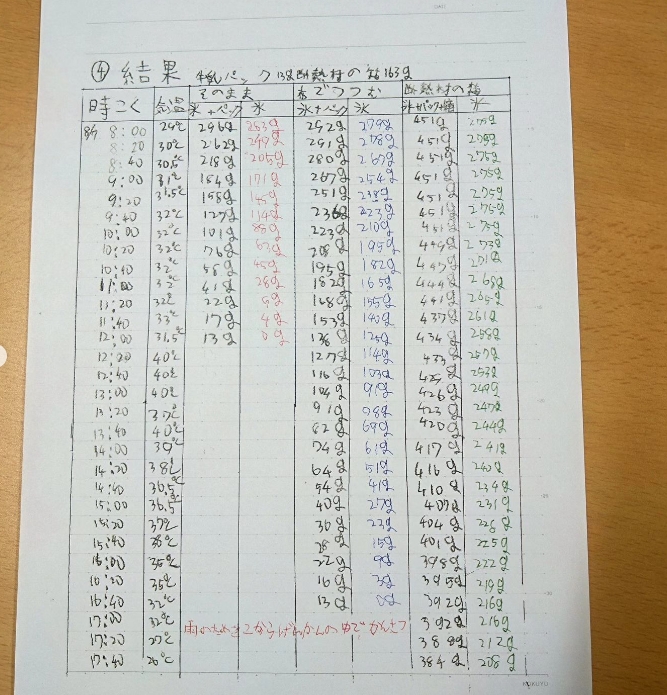 ④ 結果 牛乳パック13g 断熱材の箱163g
時こく 気温 そのまま 布でつつむ 断熱材の箱
氷+パック 氷 氷+パック 氷 氷+パック+箱 氷
8/9 8:00 29℃ 296g 283g 292g 279g 451g
8:20 30℃ 262g 249g 291g 278g 451g
8:40 30.5℃ 218g 205g 280g 267g 451g 275g
9:00 31℃ 184g 171g 267g 254g 451g 275g
9:20 31.5℃ 158g 251g 238g 451g 275g
9:40 32℃ 127g 114g 236g 223g 451g 275g
10:00 32℃ 101g 88g 223g 210g 451g 275g
10:20 32℃ 76g 63g 208g 195g 449g
10:40 32℃ 58g 45g 195g 182g 447g
11:00 32℃ 41g 28g 182g 165g 444g 268g
11:20 32℃ 22g 9g 168g 155g 441g 265g
11:40 33℃ 17g 4g 153g 140g 437g 261g
12:00 31.5℃ 13g 0g 434g 258g
12:20 40℃ 127g 114g 433g 257g
12:40 40℃ 116g 103g 253g
13:00 40℃ 104g 91g 426g 249g
13:20 37℃ 91g 423g 247g
13:40 40℃ 82g 69g 420g 244g
14:00 39℃ 74g 61g 417g 241g
14:20 38℃ 64g 51g 416g 240g
14:40 36.5℃ 54g 41g 410g 234g
15:00 36.5℃ 40g 27g 407g 231g
15:20 37℃ 36g 23g 404g 228g
15:40 28g 15g 401g 225g
16:00 22g 9g 398g 222g
35℃ 16g 3g 395g 219g
16:40 32℃ 13g 0g 392g 216g
17:00 32℃ 392g 216g
17:20 27℃ 388g 212g
17:40 26℃ 384g 208g
KOKUYO